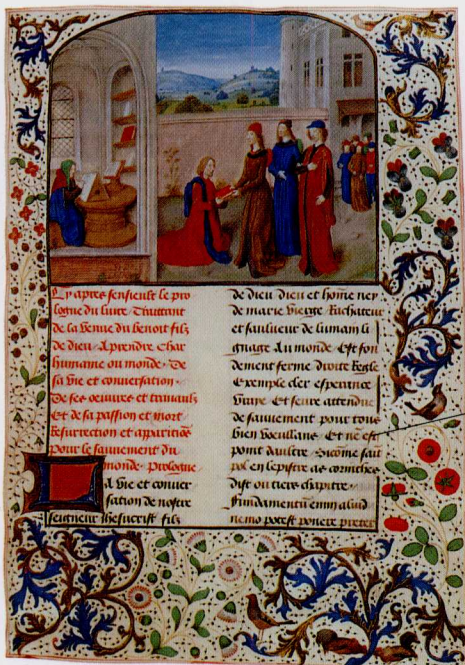 Cy apres sensieult le pro
logue du liure Traittant
de la venue du benoit filz
de dieu Aprendre char
humaine ou monde. De
sa vie et conuersation.
De ses oeuures et trauaulx
Et de sa passion et mort
Resurrection et apparitiõs
pour le sauuement du
monde. Prologue
La vie et conuer
sation de nostre
seigneur ihesucrist filz
de dieu dieu et homẽ ney
de marie vierge Rachateur
et sauueur de lumain li
gnage Au monde Est fon
dement ferme droite Regle
Exemple cler esperance
vraye Et seure attendue
de sauuement pour tous
bien voeullans. Et ne est
point daultre. Sicõme fait
pol en lepistre as corinthes
dist ou tiers chapitre.
Fundamentũ enim aliud
nemo potest ponere preter